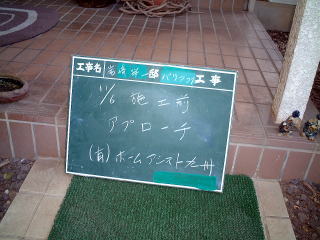 工事名 岩崎邸 一部バリアフリー工事
11/6 施工前
アプローチ
(有)ホームアシスト九州